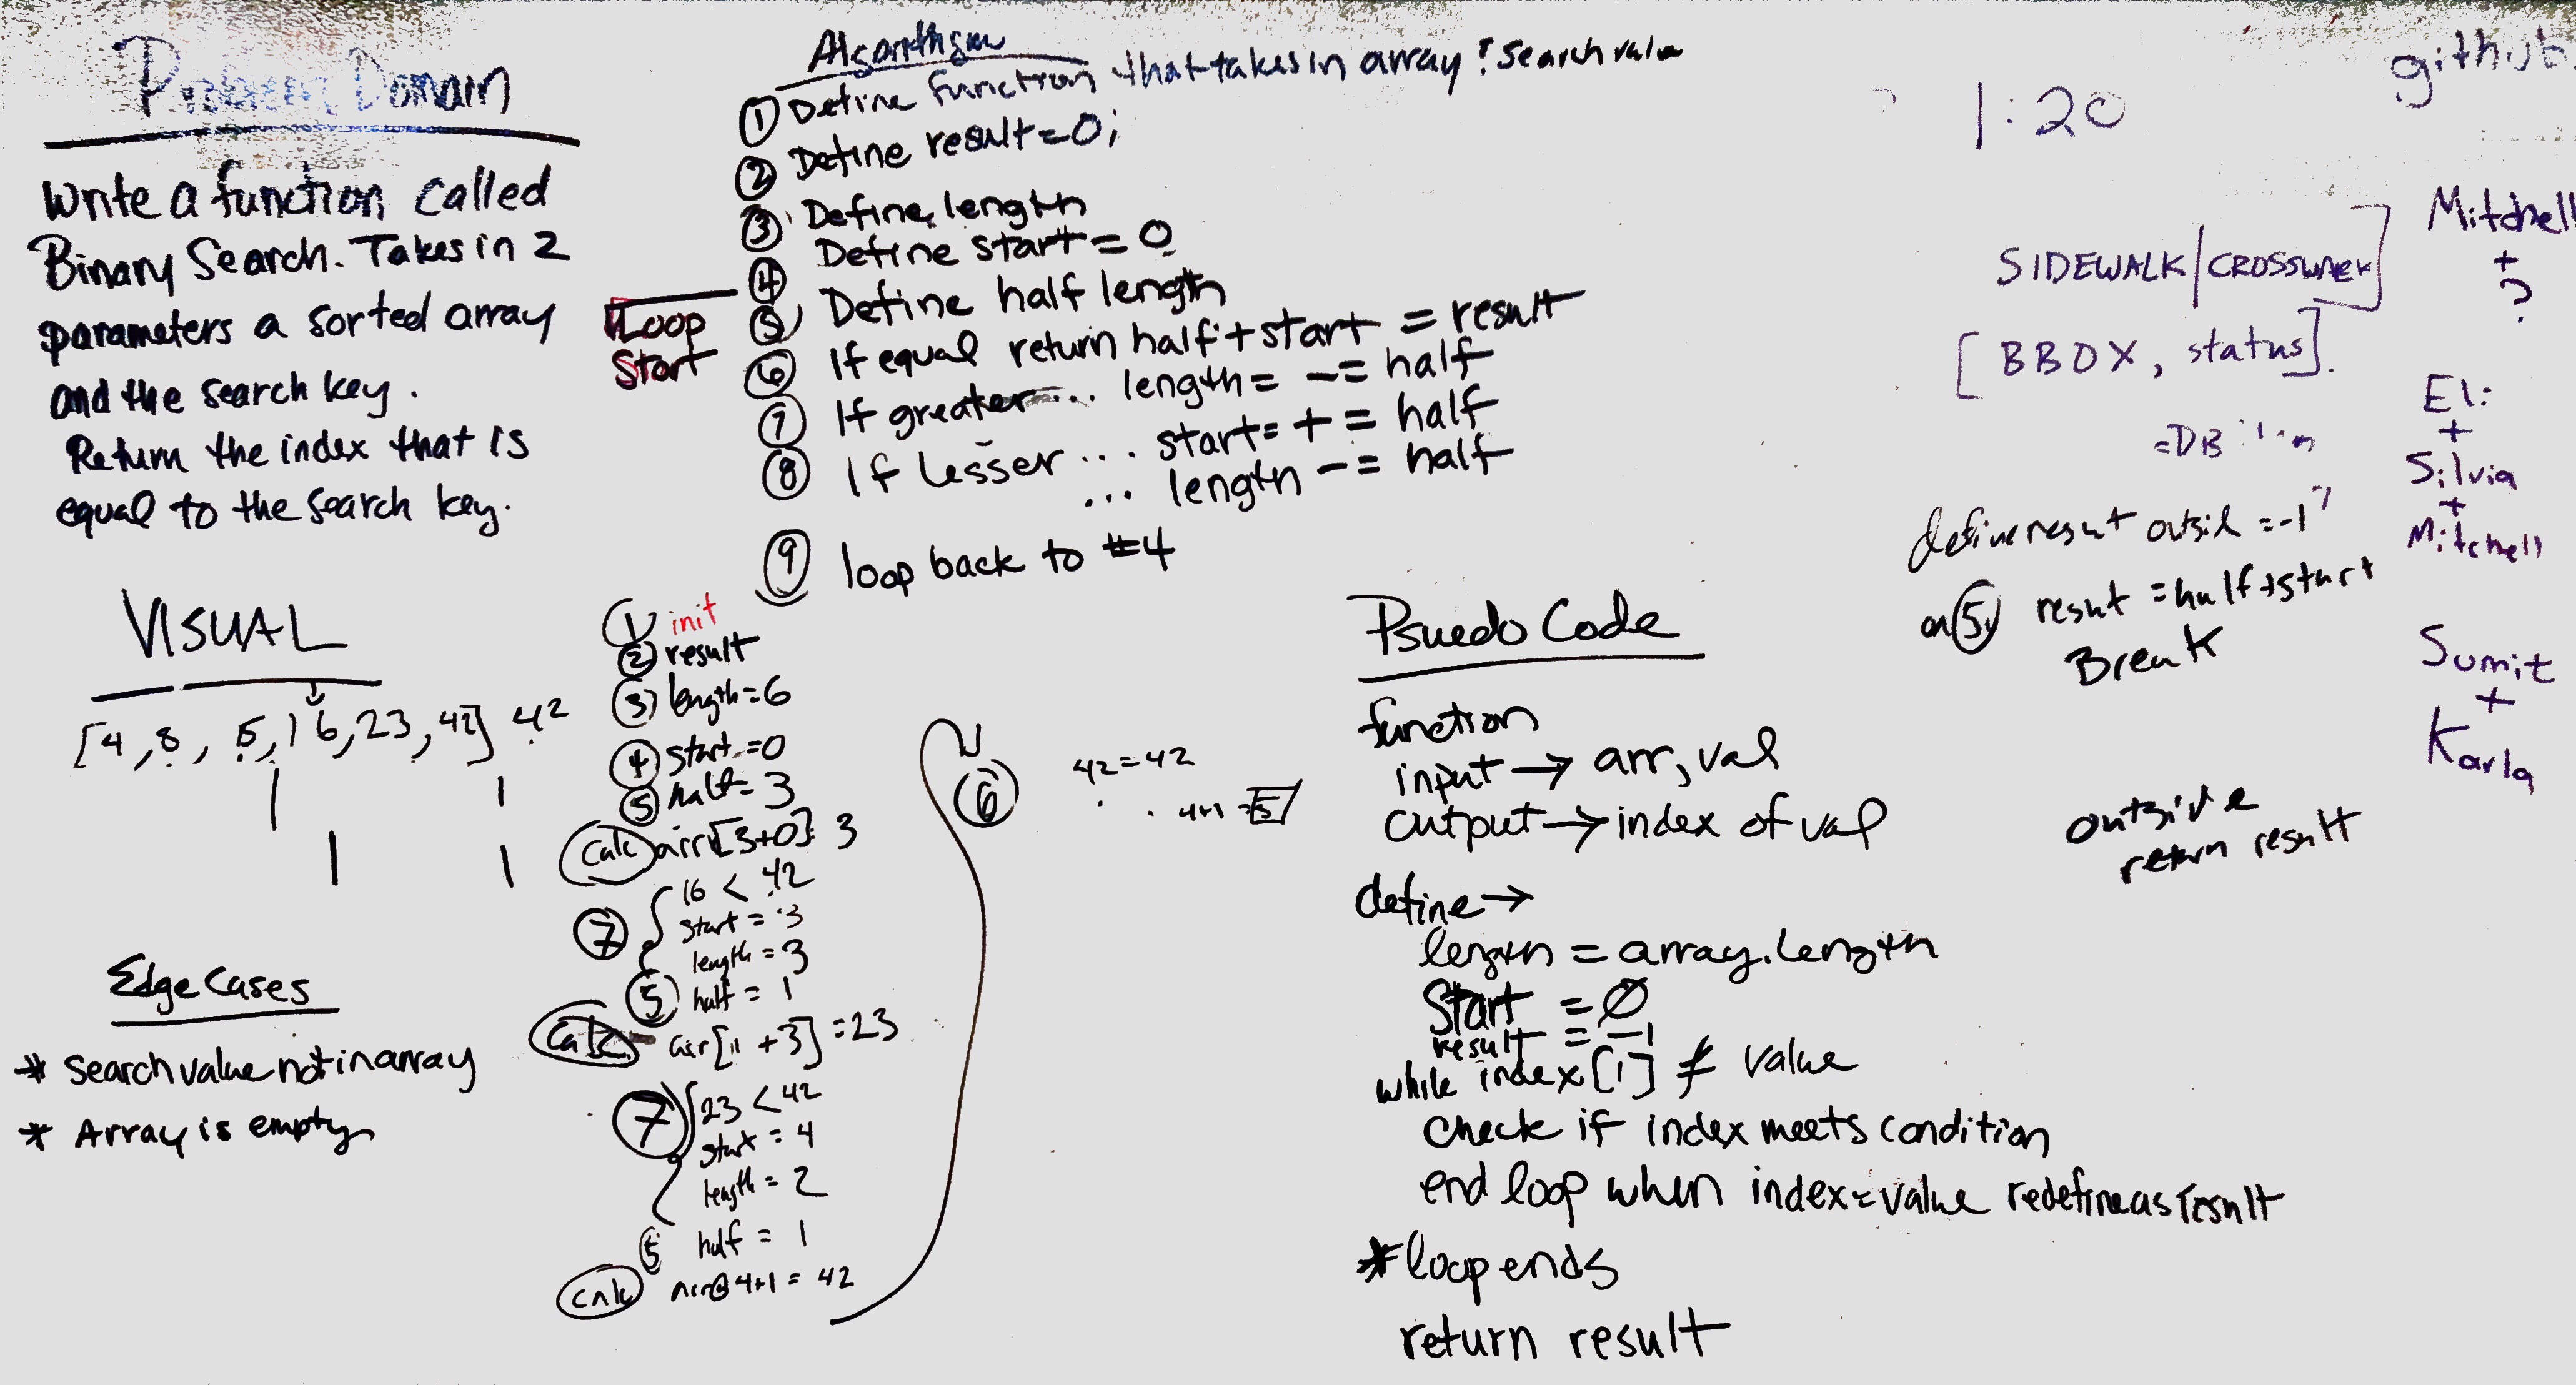 Problem Domain
Write a function called
Binary Search. Takes in 2
parameters a sorted array
and the search key.
Return the index that is
equal to the search key.
Algorithm
① Define function that takes in array & search value
② Define result=0;
③ Define length
④ Define start = 0
Loop
Start
⑤ Define half length
⑥ If equal return half + start = result
⑦ If greater... length= -= half
⑧ If lesser ... start= += half
... length -= half
⑨ loop back to #4
VISUAL
[4, 8, 5, 16, 23, 42] 42
Edge Cases
* Search value not in array
* Array is empty
① init
② result
③ length=6
④ start=0
⑤ half= 3
Calc arr[3+0] 3
⑦ 16 < 42
start = 3
length = 3
⑤ half = 1
Calc arr[1 +3] =23
⑦ 23 < 42
start = 4
length = 2
5 half = 1
calc arr@ 4+1 = 42
⑥ 42=42
4+1 = 5
Psuedo Code
function
input → arr, val
output → index of val
define →
length = array.length
Start = Ø
result = -1
while index[i] ≠ value
check if index meets condition
end loop when index=value redefine as result
*loop ends
return result
1:20
github
SIDEWALK/CROSSWALK]
[BBOX, status].
define result outsid = -1
on ⑤ result = half+start
Break
outside
return result
Mitchell
+
?
Eli
+
Silvia
+
Mitchell
Sumit
+
Karla